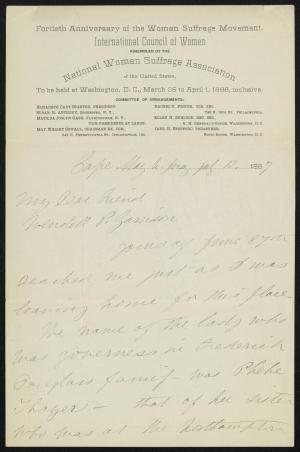 Fortieth Anniversary of the Woman Suffrage Movement.
International Council of Women
ASSEMBLED BY THE
National Woman Suffrage Association
of the United States,
To be held at Washington, D. C., March 25 to April 1, 1888, inclusive.
COMMITTEE OF ARRANGEMENTS:
ELIZABETH CADY STANTON, PRESIDENT.
SUSAN B. ANTHONY, ROCHESTER, N. Y.
MATILDA JOSLYN GAGE, FAYETTEVILLE, N. Y.
VICE-PRESIDENTS AT LARGE.
MAY WRIGHT SEWALL, CHAIRMAN EX. COM.,
343 N. PENNSYLVANIA ST., INDIANAPOLIS, IND.
RACHEL G. FOSTER, COR. SEC.
PHILADELPHIA
ELLEN H. SHELDON, REC. SEC.
WASHINGTON, D. C.
JANE H. SPOFFORD, TREASURER,
RIGGS HOUSE, WASHINGTON, D. C.
Cape May, 1887
My Dear Friend
Wendell P. Garrison
Yours of June 27th
reached me just as I was
leaving home for this place
The name of the lady who
was governess in Frederick
Douglass family - was Phebe
Thayer - that of her sister
who was at the Northampton